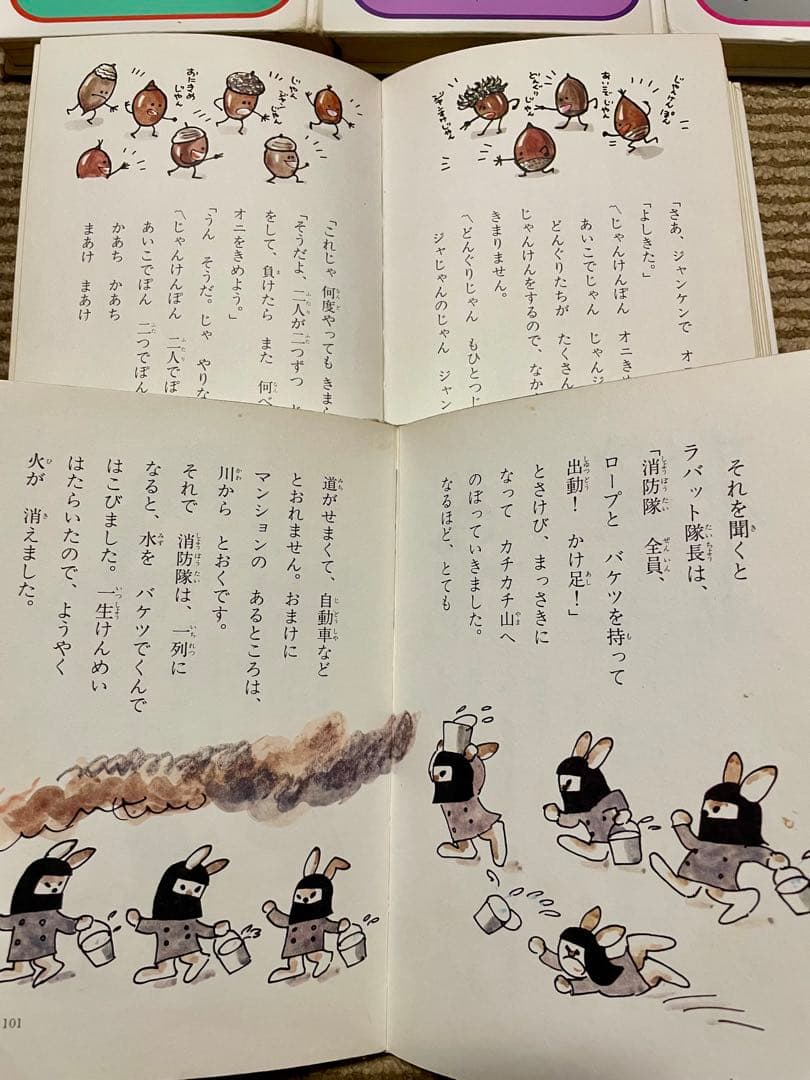 じゃんけんぽん
あいこでじゃん
どんぐりじゃん
「さあ、ジャンケンで オ
「よしきた。」
〽じゃんけんぽん オニき
あいこでじゃん じゃんジ
どんぐりたちが たくさん
じゃんけんをするので、なか
きまりません。
〽どんぐりじゃん もひとつじ
ジャじゃんのじゃん ジャン
じゃんジャンじゃん
おにきめじゃん
「これじゃ 何度やっても きま
「そうだよ、二人が二つずつ
をして、負けたら また 何べ
オニをきめよう。」
「うん そうだ。じゃ やりな
〽じゃんけんぽん 二人でぽ
あいこでぽん 二つでぽん
かあち かあち
まあけ まあけ
それを聞くと
ラバット隊長は、
「消防隊 全員、
ロープと バケツを持って
出動! かけ足!」
とさけび、まっさきに
なって カチカチ山へ
のぼっていきました。
なるほど、とても
道がせまくて、自動車など
とおれません。おまけに
マンションの あるところは、
川から とおくです。
それで 消防隊は、一列に
なると、水を バケツでくんで
はこびました。一生けんめい
はたらいたので、ようやく
火が 消えました。
101